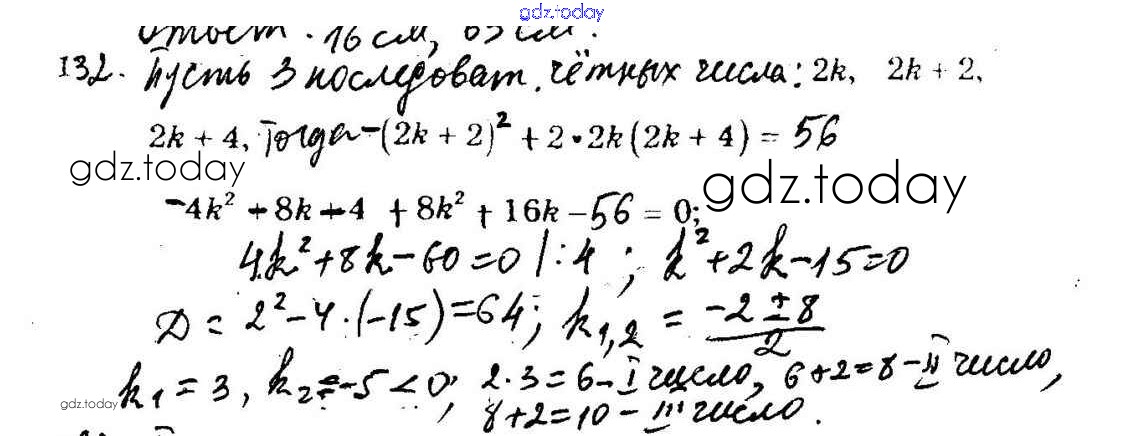 gdz.today
Ответ. 16 см, 63 см.
132. Пусть 3 последоват. чётных числа: 2k, 2k + 2,
2k + 4, Тогда -(2k + 2)² + 2·2k(2k + 4) = 56
gdz.today
gdz.today
-4k² - 8k - 4 + 8k² + 16k - 56 = 0;
4k² + 8k - 60 = 0 |:4 ; k² + 2k - 15 = 0
D = 2² - 4·(-15) = 64; k₁,₂ = (-2 ± 8)/2
k₁ = 3, k₂ = -5 < 0; 2·3 = 6 - I число, 6 + 2 = 8 - II число,
gdz.today
8 + 2 = 10 - III число.